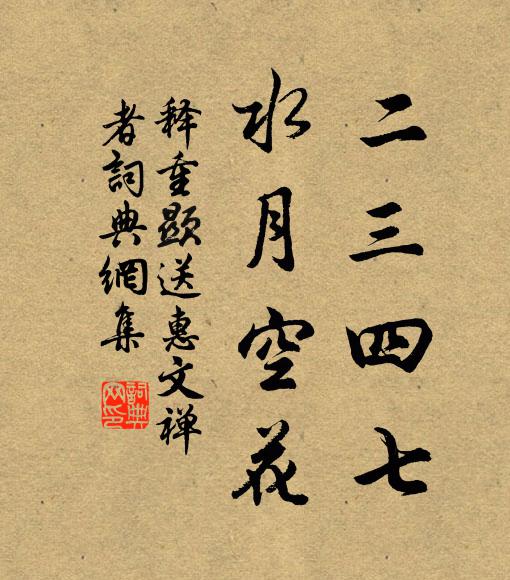 二三四七
水月空花
释重顯送惠文禅
者詞典網集
詞典
网印